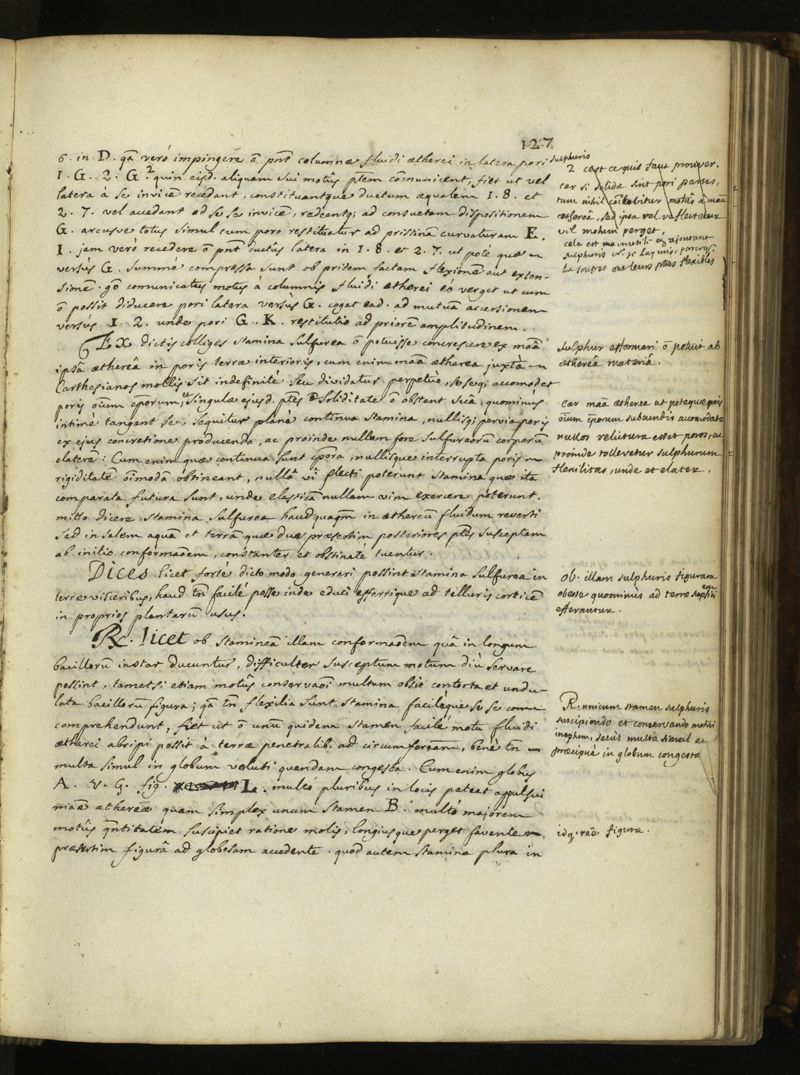 127
6. in D. qa verò impingere õ pnt columnæ fluidi ætherei in latera pori sulphuris
1. G. 2. G. quin ejsd. aliquam sui motûs ptem cõmunicent, fiet ut vel
latera à se invicē recedant, constituantque ductum æqualem 1. 8. et
2. 7. vel accedant ad se se invicē, redeantq; ad consuetam dispositionem
G. arcusve totus simul cum poro restituatur ad pristinã curvaturam E.
I. jam verò recedere õ pnt ductûs latera in 1. 8. et 2. 7. ut pote quæ
versùs G. summè compressa sunt ob pridem factam flexionē aut exten-
sionē. go communicatus motus à columnis fluidi ætherei eò verget ut cum
õ possit diducere pori latera versùs G. cogat ead. ad mutuã accessionem
versùs 1. 2. unde pori G. K. restitutio ad priorē amplitudinem.
Ex dictis colliges stamina sulfurea õ potuisse concrescere ex maã
ipsâ æthereâ in poris terræ interioris, cum enim maã ætherea juxtà
Carthesianos mollis sit indefinitè seu dividatur perpetuò, se seqi acomodet
poris oium cporum, singulæ ejsd. ptes soliditate õ obstant suâ, quominus
intimè tangant se, sequitur planè continua stamina, nullisqi pervia poris
ex ejus concretione producenda, ac proinde nullum fore sulfureorũ corporũ
elaterē: Cum enim quæ continua sunt cpora, nullisque interrupta poris
rigiditatē oimodã obtineant, nullâ vi flecti poterunt stamina quæ ita
comparata futura sunt, unde elasticã nullam vim exercere poterunt.
mitto dicere stamina sulfurea haudquaqm in æthereũ fluidum reverti
sed in salem aquã et terrã quæ duæ præsertim posteriores ptes susceptam
ab initio conformaõem, constanter et obstinatè tuentur.
Dices licet fortè dicto modo generari possint stamina sulfurea in
terræ visceribus, haud tñ facile posse inde educi efferrique ad telluris corticē
in proprios plantarũ usus.
R. licet ob stamineã illam conformaõem quâ in longum
bacillorũ instar ducuntur, difficulter susceptum motum diù servare
possint, tametsi etiam motûs conservaoi multum obsit contorta et undu-
lata bacillorũ figura; qa tñ flexilia sunt stamina facilèque se se com
comprehendunt, fiet ut õ unũ quidem stamen facilè motu fluidi
ætherei abripi possit à terræ penetralib. ad circumferam, benè tñ
multa simul in globum veluti quendam congesta. Cum enim globus
A. v. g. fig. L. multò pluribus in locis pateat appulsui
maæ æthereæ quam simplex unum stamen B. multò majorem
motûs qntitatem suscipiet ratione molis, longiusque perget favente
præsertim figurâ ad globosam accedente. quod autem stamina plura in
2 c'est ce qu'il faut prouver.
car si solida sint pori partes,
tum nihil coibebitur motûs à maã
æthereâ, sed ipsa vel reflectetur
vel motum perget.
cela est ma mutile en ajoutant
sulphuris
la soufre ont leurs ptes flexibles
sulphur efformari õ potuit ab
æthereâ materiâ.
ear maã ætherea ut pote quæ poris
oium cporum subeundis acomodata
nullos relictura esset poros, ac
proinde tolleretur sulphurum
flexilitas, unde et elater.
ob. illam sulphuris figuram
obesse quominus ad terræ supficiem
efferantur.
R. unicum stamen sulphuris
suscipiendo et conservando motui
ineptum, secùs multa simul ac
præcipuè in globum congesta
idq. raõe figuræ.